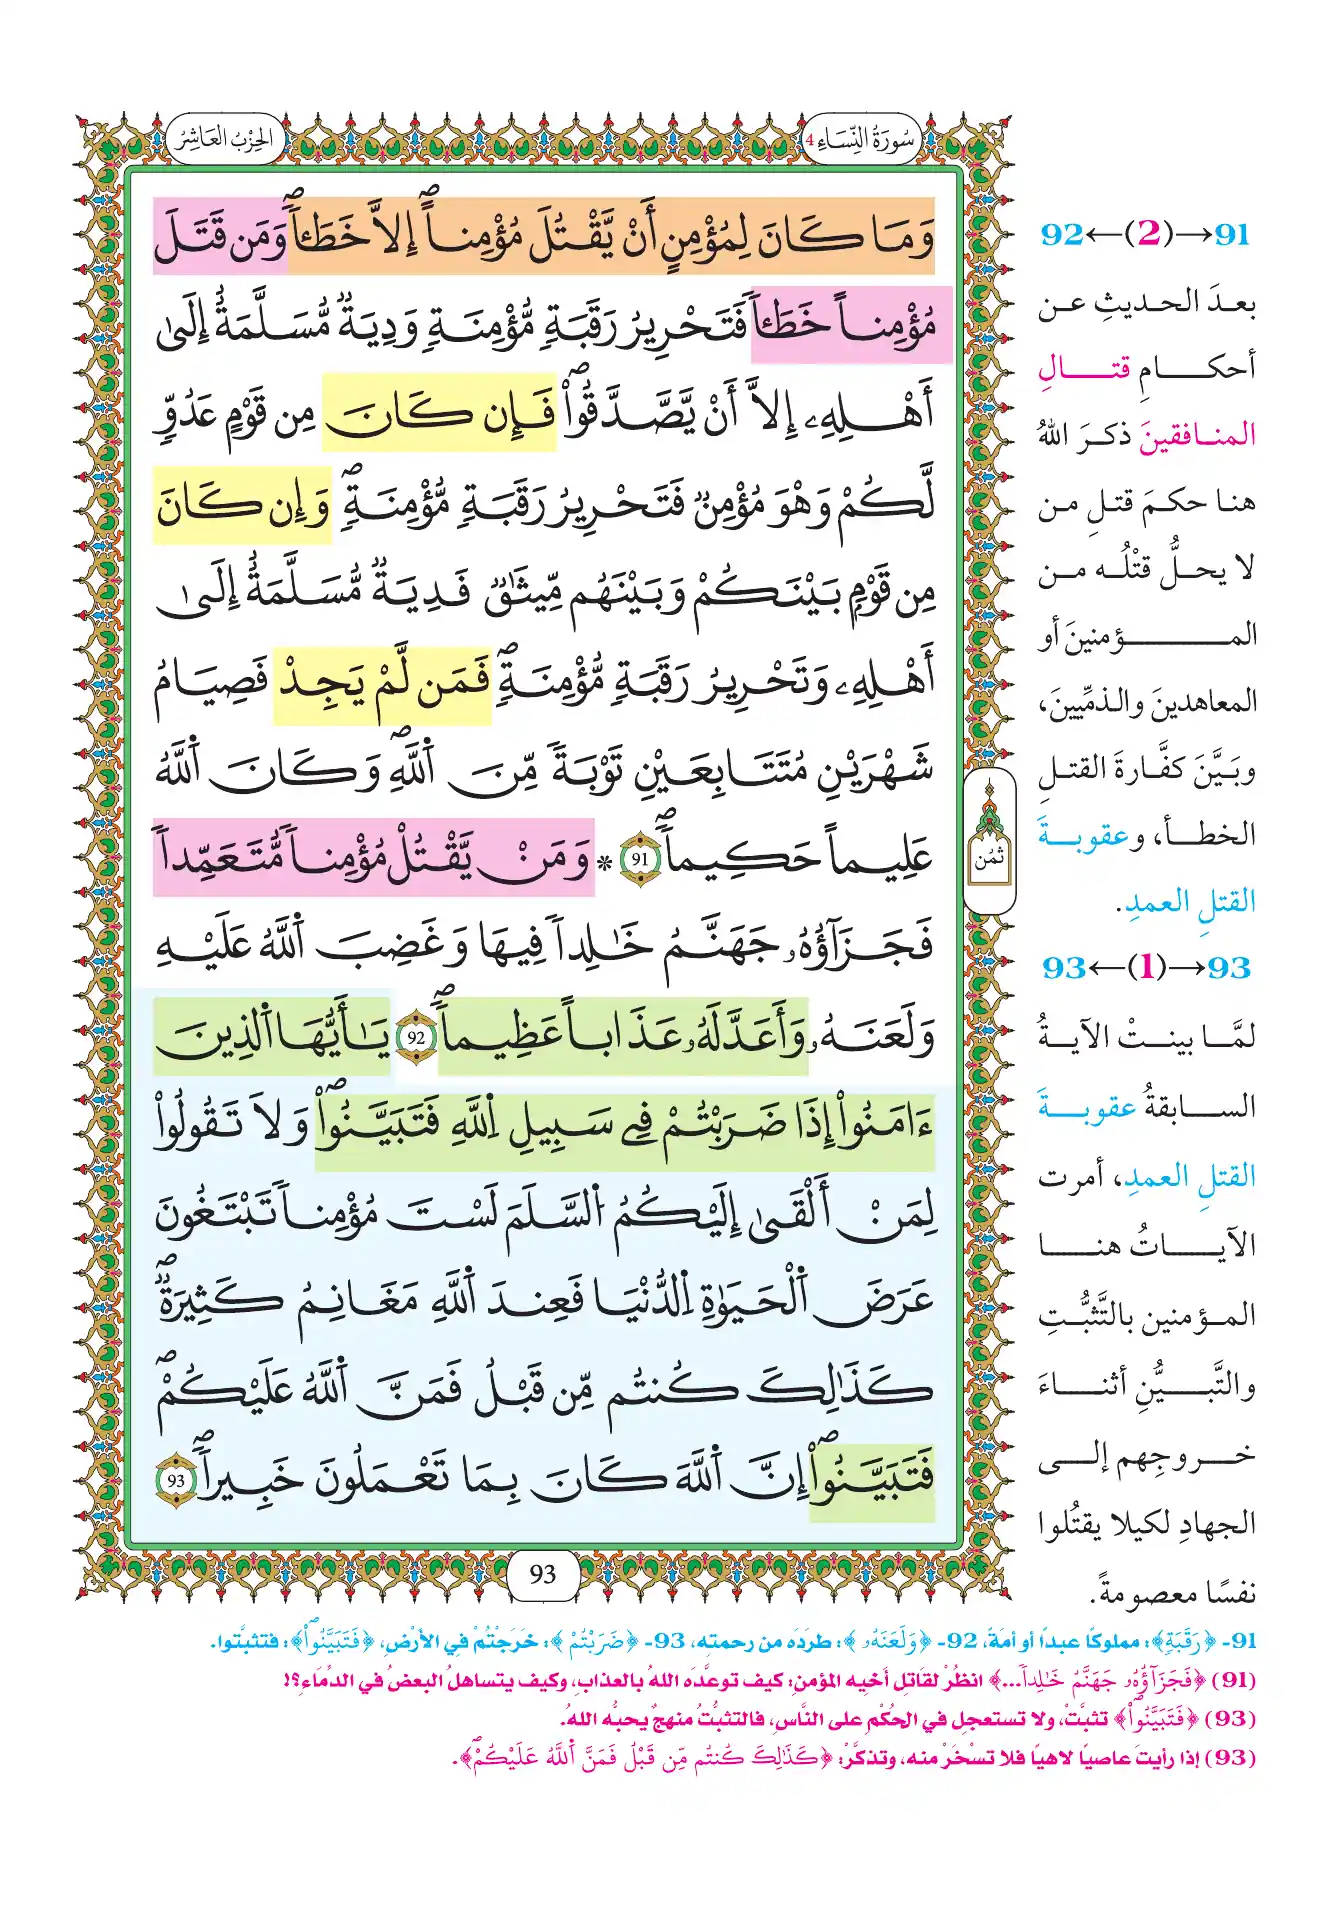 سُورَةُ النِّسَاءِ 4
الحِزْبُ العَاشِرُ
وَمَا كَانَ لِمُؤْمِنٍ أَنْ يَّقْتُلَ مُؤْمِناً إِلاَّ خَطَـٔاًۖ وَمَن قَتَلَ
مُؤْمِناً خَطَـٔاً فَتَحْرِيرُ رَقَبَةٍ مُّؤْمِنَةٍ وَدِيَةٌ مُّسَلَّمَةٌ إِلَىٰٓ
أَهْلِهِۦٓ إِلَّآ أَنْ يَّصَّدَّقُواْۖ فَإِن كَانَ مِن قَوْمٍ عَدُوٍّ
لَّكُمْ وَهْوَ مُؤْمِنٌ فَتَحْرِيرُ رَقَبَةٍ مُّؤْمِنَةٍۖ وَإِن كَانَ
مِن قَوْمٍۭ بَيْنَكُمْ وَبَيْنَهُم مِّيثَٰقٌ فَدِيَةٌ مُّسَلَّمَةٌ إِلَىٰٓ
أَهْلِهِۦ وَتَحْرِيرُ رَقَبَةٍ مُّؤْمِنَةٍۖ فَمَن لَّمْ يَجِدْ فَصِيَامُ
شَهْرَيْنِ مُتَتَابِعَيْنِ تَوْبَةً مِّنَ اَ۬للَّهِۖ وَكَانَ اَ۬للَّهُ
عَلِيماً حَكِيماًۖ 91 * وَمَنْ يَّقْتُلْ مُؤْمِناً مُّتَعَمِّداً
فَجَزَآؤُهُۥ جَهَنَّمُ خَٰلِداً فِيهَا وَغَضِبَ اَ۬للَّهُ عَلَيْهِ
وَلَعَنَهُۥ وَأَعَدَّ لَهُۥ عَذَاباً عَظِيماًۖ 92 يَٰٓأَيُّهَا اَ۬لذِينَ
ءَامَنُوٓاْ إِذَا ضَرَبْتُمْ فِے سَبِيلِ اِ۬للَّهِ فَتَبَيَّنُواْۖ وَلَا تَقُولُواْ
لِمَنْ أَلْقَىٰٓ إِلَيْكُمُ اُ۬لسَّلَمَ لَسْتَ مُؤْمِناً تَبْتَغُونَ
عَرَضَ اَ۬لْحَيَوٰةِ اِ۬لدُّنْيَا فَعِندَ اَ۬للَّهِ مَغَانِمُ كَثِيرَةٌۖ
كَذَٰلِكَ كُنتُم مِّن قَبْلُ فَمَنَّ اَ۬للَّهُ عَلَيْكُمْۖ
فَتَبَيَّنُوٓاْۖ إِنَّ اَ۬للَّهَ كَانَ بِمَا تَعْمَلُونَ خَبِيراًۖ 93
ثمُن
93
91→(2)←92
بعدَ الحديثِ عن
أحكامِ قتالِ
المنافقينَ ذكرَ اللهُ
هنا حكمَ قتلِ من
لا يحلُّ قتْلُه من
المؤمنينَ أو
المعاهدينَ والذمِّيينَ،
وبَيَّنَ كفَّارةَ القتلِ
الخطأ، وعقوبةَ
القتلِ العمدِ.
93→(1)←93
لمَّا بينتْ الآيةُ
السابقةُ عقوبةَ
القتلِ العمدِ، أمرت
الآياتُ هنا
المؤمنين بالتَّثبُّتِ
والتَّبيُّنِ أثناءَ
خروجِهم إلى
الجهادِ لكيلا يقتُلوا
نفسًا معصومةً.
91- ﴿رَقَبَةٍ﴾: مملوكًا عبدًا أو أمَةً، 92- ﴿وَلَعَنَهُۥ﴾: طرَدَه من رحمتِه، 93- ﴿ضَرَبْتُمْ﴾: خَرَجْتُمْ في الأرْضِ، ﴿فَتَبَيَّنُواْۖ﴾: فتثبَّتوا.
(91) ﴿فَجَزَآؤُهُۥ جَهَنَّمُ خَٰلِداً...﴾ انظُرْ لقَاتلِ أخيه المؤمنِ: كيف توعَّدَه اللهُ بالعذابِ، وكيف يتساهلُ البعضُ في الدِّماءِ؟!
(93) ﴿فَتَبَيَّنُواْۖ﴾ تثبَّتْ، ولا تستعجلِ في الحُكْمِ على النَّاسِ، فالتثبُّتُ منهجٌ يحبُّه اللهُ.
(93) إذا رأيتَ عاصيًا لاهيًا فلا تسْخَرْ منه، وتذكَّرْ: ﴿كَذَٰلِكَ كُنتُم مِّن قَبْلُ فَمَنَّ اَ۬للَّهُ عَلَيْكُمْۖ﴾.